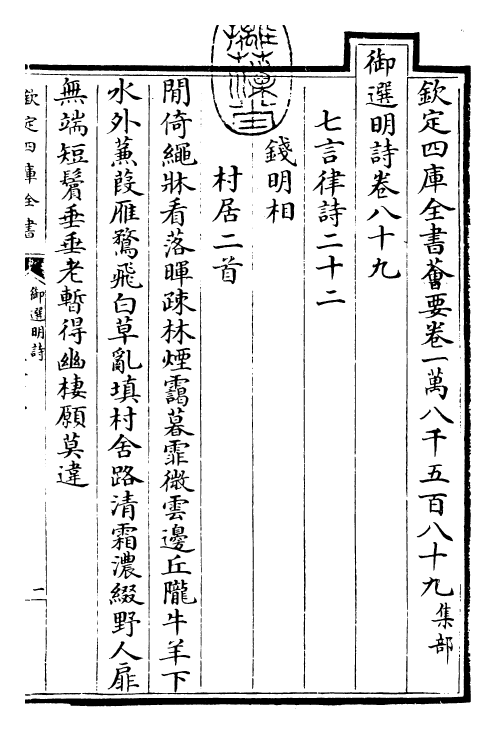 欽定四庫全書薈要卷一萬八千五百八十九 集部
御選明詩卷八十九
七言律詩二十二
錢明相
村居二首
閒倚繩牀看落暉疎林煙靄暮霏微雲邊丘隴牛羊下
水外蒹葭雁鶩飛白草亂填村舍路清霜濃綴野人扉
無端短鬢垂垂老暫得幽棲願莫違
欽定四庫全書
御選明詩